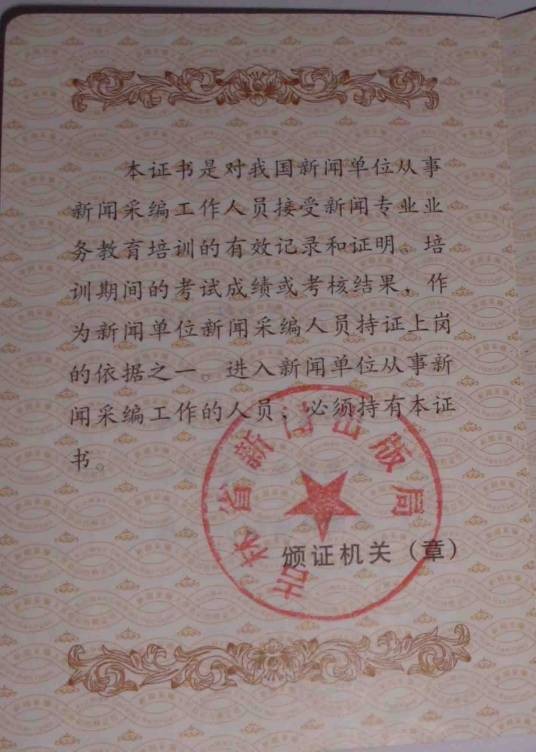 本证书是对我国新闻单位从事
新闻采编工作人员接受新闻专业业
务教育培训的有效记录和证明。培
训期间的考试成绩或考核结果，作
为新闻单位新闻采编人员持证上岗
的依据之一。进入新闻单位从事新
闻采编工作的人员，必须持有本证
书。
吉林省新闻出版局
颁证机关（章）